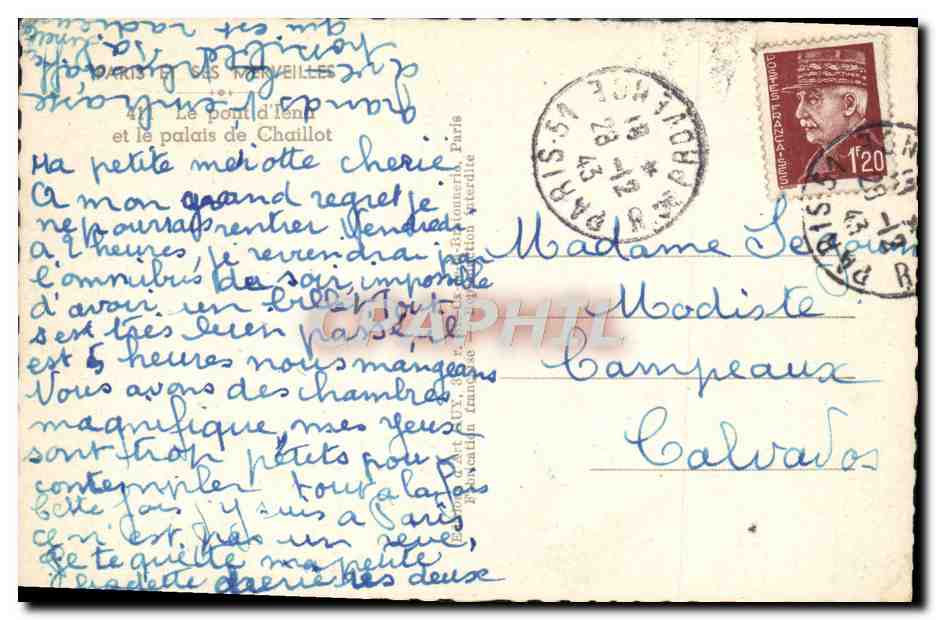 PARIS ET SES MERVEILLES
41 Le pont d'Iena
et le palais de Chaillot
Ma petite mériotte cherie
A mon grand regret je
ne pourrai rentrer Vendredi
a 2 heures, je reviendrai par
l'omnibus du soir, impossible
d'avoir un billet, tout
s'est très bien passé, il
est 5 heures nous mangeons
Nous avons des chambres
magnifique, mes yeux
sont trop petits pour
contempler tout a la fois
Cette fois j'y suis a Paris
ce n'est pas un reve,
Je te quitte ma petite
les deux
grands t'embrasse
horrible
qui est radieuse
Editions d'Art GUY, Paris
Fabrication française Reproduction interdite
PARIS-51
R. PROVENCE
18 H
28 -12
43
POSTES FRANÇAISES
1F20
PARIS-51
43
Madame
Modiste
Campeaux
Calvados
CPAPHIL